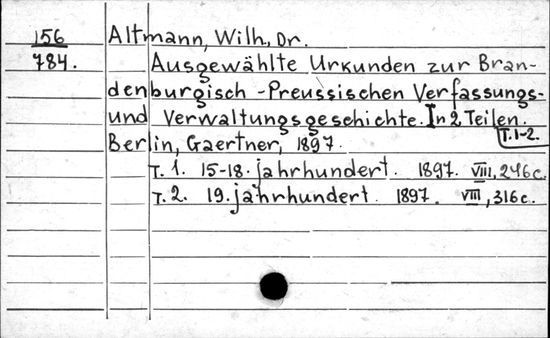 156 Altmann, Wilh., Dr.
784. Ausgewählte Urkunden zur Bran-
denburgisch-Preussischen Verfassungs-
und Verwaltungsgeschichte. In 2 Teilen.
T. 1-2.
Berlin, Gaertner, 1897.
T. 1. 15-18. jahrhundert. 1897. VIII, 246 c.
T. 2. 19. jahrhundert. 1897. VIII, 316 c.